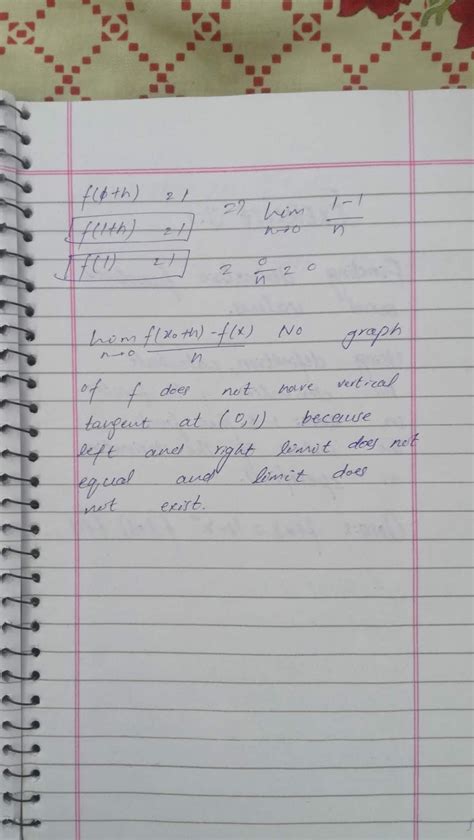 f(0+h) = 1 => lim n→0 1-1/n
f(1+h) = 1
f(1) = 1 = 0/n = 0
lim n→0 f(x₀+h)-f(x)/n No graph
of f does not have vertical
tangent at (0,1) because
left and right limit does not
equal and limit does
not exist.